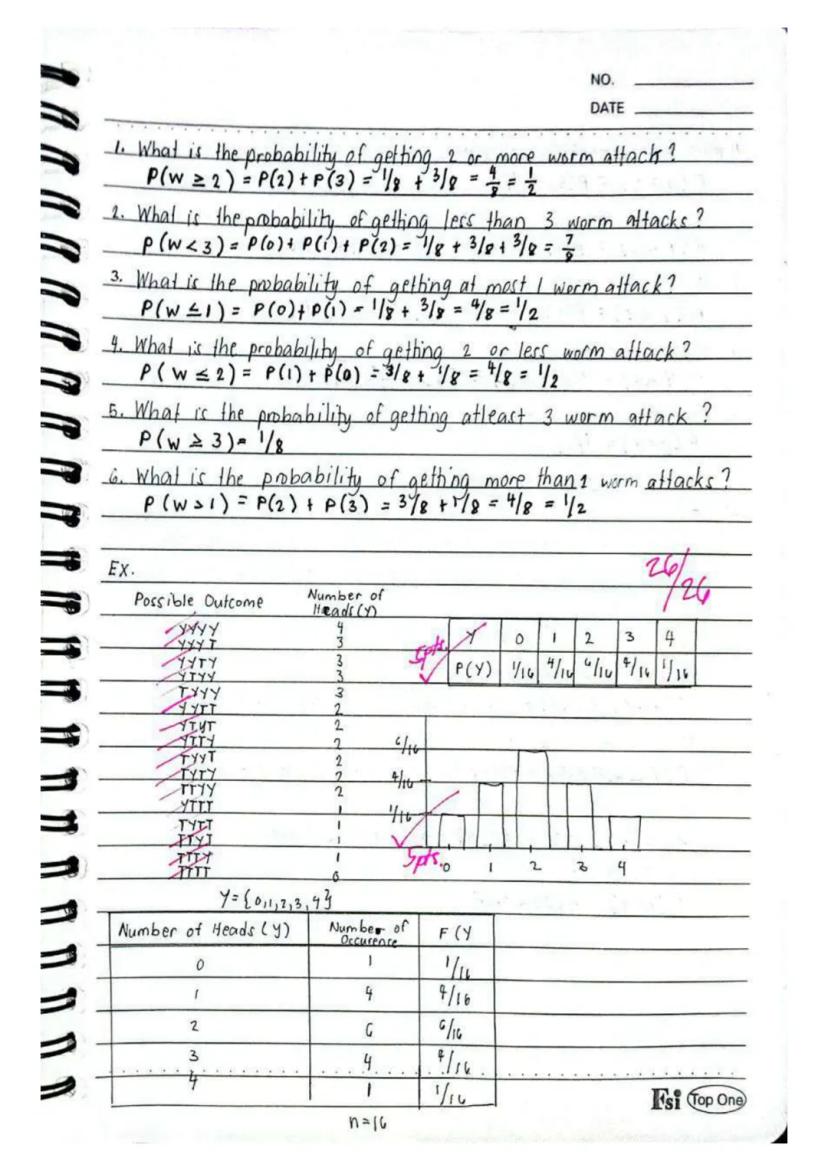 NO.
DATE
1. What is the probability of getting 2 or more worm attack?
P(W ≥ 2) = P(2) + P(3) = 1/8 + 3/8 = 4/8 = 1/2
2. What is the probability of getting less than 3 worm attacks?
P(W < 3) = P(0) + P(1) + P(2) = 1/8 + 3/8 + 3/8 = 7/8
3. What is the probability of getting at most 1 worm attack?
P(W ≤ 1) = P(0) + P(1) = 1/8 + 3/8 = 4/8 = 1/2
4. What is the probability of getting 2 or less worm attack?
P(W ≤ 2) = P(1) + P(0) = 3/8 + 1/8 = 4/8 = 1/2
5. What is the probability of getting atleast 3 worm attack?
P(W ≥ 3) = 1/8
6. What is the probability of getting more than 1 worm attacks?
P(W > 1) = P(2) + P(3) = 3/8 + 1/8 = 4/8 = 1/2
EX.
26/26
Possible Outcome Number of Heads (Y)
YYYY 4
YYYT 3
YYTY 3
YTYY 3
TYYY 3
YYTT 2
YTYT 2
YTTY 2
TYYT 2
TYTY 2
TTYY 2
YTTT 1
TYTT 1
TTYT 1
TTTY 1
TTTT 0
5pts.
Y 0 1 2 3 4
P(Y) 1/16 4/16 6/16 4/16 1/16
6/16
4/16
1/16
5pts.
0 1 2 3 4
Y = {0,1,2,3,4}
Number of Heads (Y) Number of Occurence F(Y
0 1 1/16
1 4 4/16
2 6 6/16
3 4 4/16
4 1 1/16
n=16
Fsi Top One